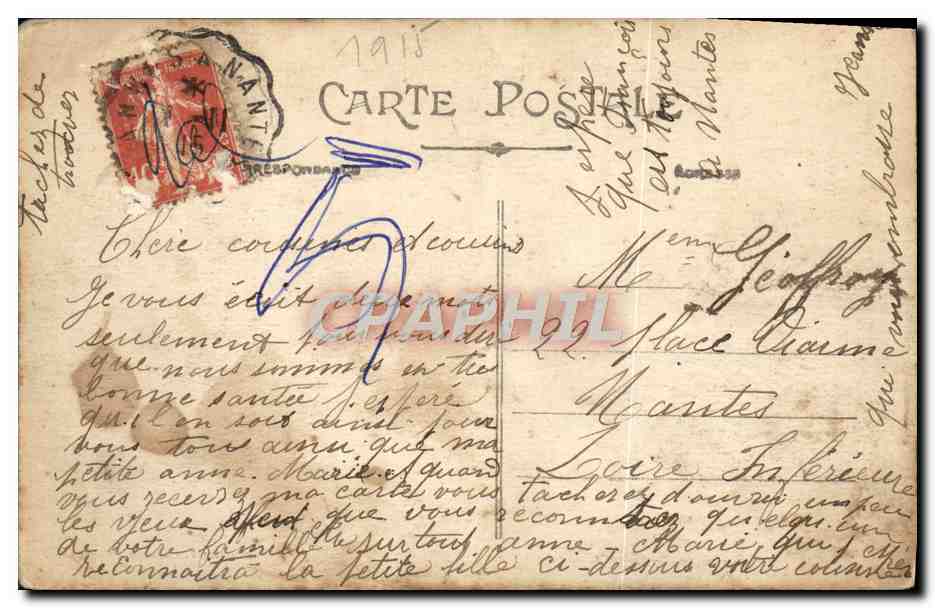 1915
CARTE POSTALE
CORRESPONDANCE
ADRESSE
5
Chère cousines et cousin
Je vous écrit deux mots
seulement pour vous dir
que nous sommes en très
bonne santée j'espère
qu'il en sois ainsi pour
vous tous ainsi que ma
petite anne Marie et quand
vous recevrez ma carte vous tacherez d'ouvri un peu
les yeux que vous reconnaitrez quelqu'un
de votre famille surtout anne-Marie qui
reconnaitra la petite fille ci-dessus votre cousine
Mem Geoffroy
22. Place Viarme
Nantes
Loire Inférieure
J'espère
que François
est toujours
a Nantes
que vous embrasse Jeanne
tachez de
trouver
CPAPHIL